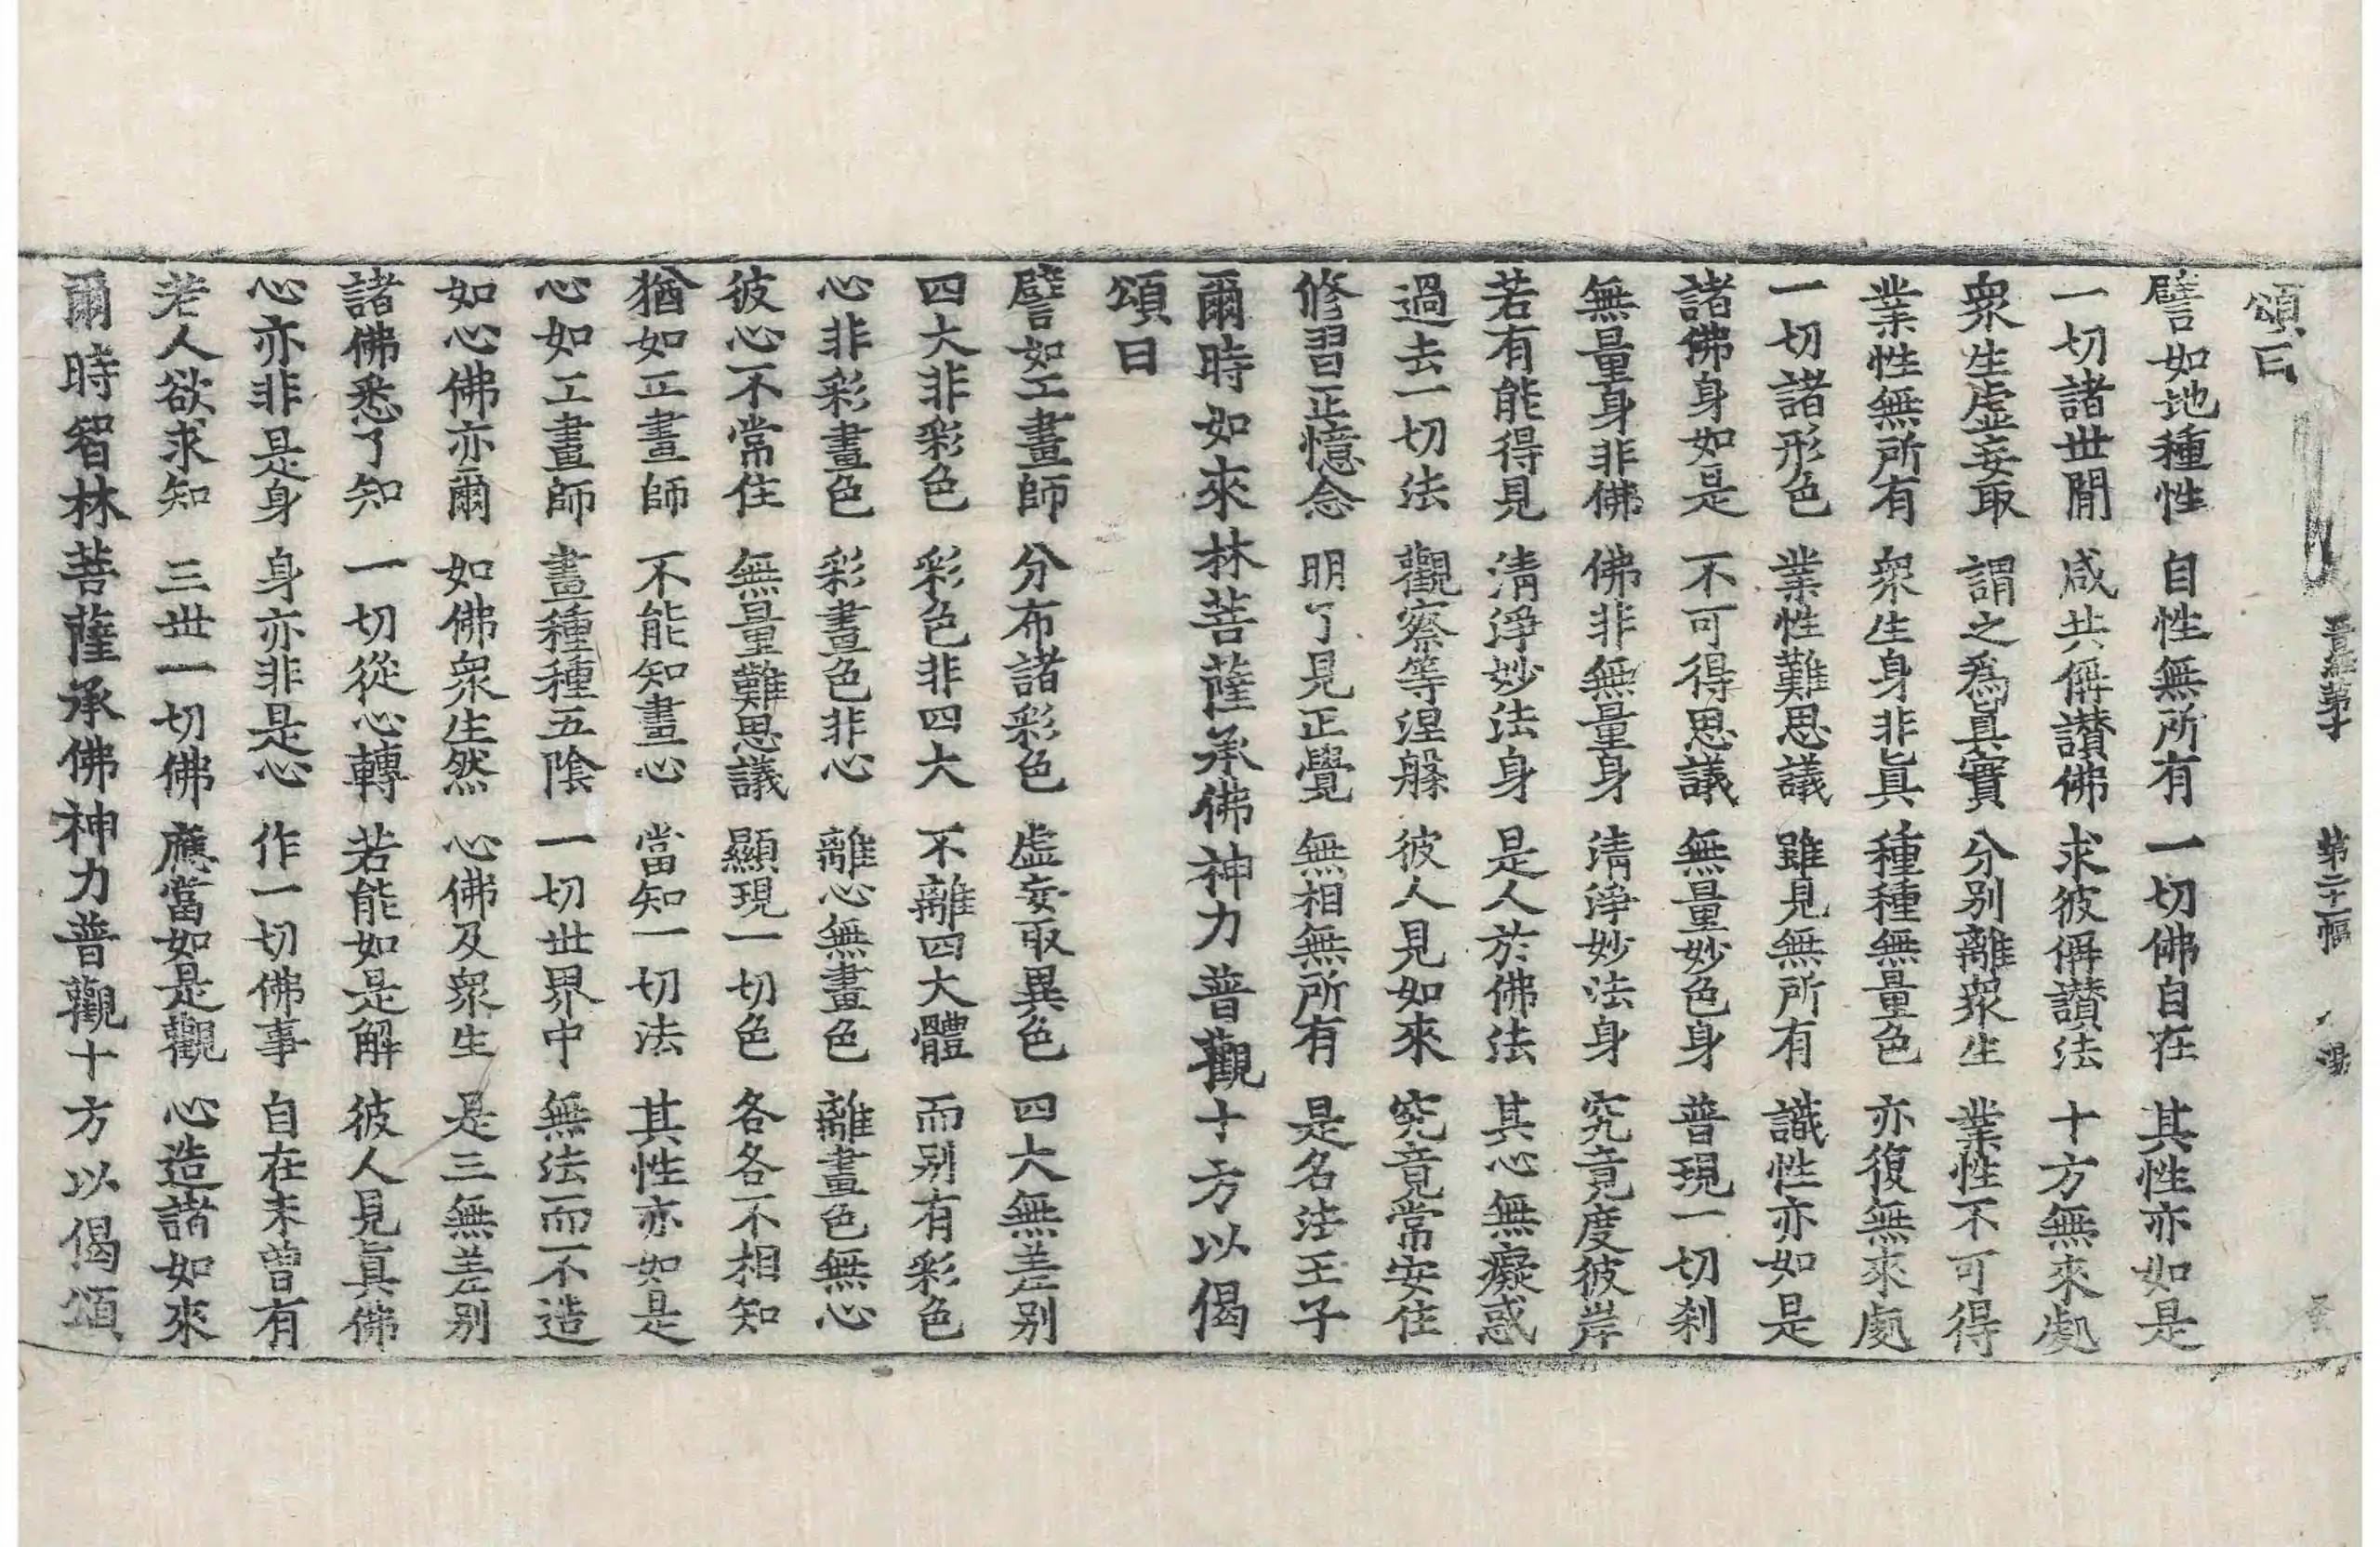 晉經第十 第二十幅
頌曰
譬如地種性 自性無所有 一切佛自在 其性亦如是
一切諸世閒 咸共稱讃佛 求彼稱讃法 十方無來處
衆生虛妄取 謂之爲眞實 分别離衆生 業性不可得
業性無所有 衆生身非眞 種種無量色 亦復無來處
一切諸形色 業性難思議 雖見無所有 識性亦如是
諸佛身如是 不可得思議 無量妙色身 普現一切刹
無量身非佛 佛非無量身 淸淨妙法身 究竟度彼岸
若有能得見 淸淨妙法身 是人於佛法 其心無癡惑
過去一切法 觀察等涅槃 彼人見如來 究竟常安住
修習正憶念 明了見正覺 無相無所有 是名法王子
爾時如來林菩薩承佛神力普觀十方以偈
頌曰
譬如工畫師 分布諸彩色 虛妄取異色 四大無差别
四大非彩色 彩色非四大 不離四大體 而别有彩色
心非彩畫色 彩畫色非心 離心無畫色 離畫色無心
彼心不常住 無量難思議 顯現一切色 各各不相知
猶如工畫師 不能知畫心 當知一切法 其性亦如是
心如工畫師 畫種種五陰 一切世界中 無法而不造
如心佛亦爾 如佛衆生然 心佛及衆生 是三無差别
諸佛悉了知 一切從心轉 若能如是解 彼人見眞佛
心亦非是身 身亦非是心 作一切佛事 自在未曾有
若人欲求知 三世一切佛 應當如是觀 心造諸如來
爾時智林菩薩承佛神力普觀十方以偈頌